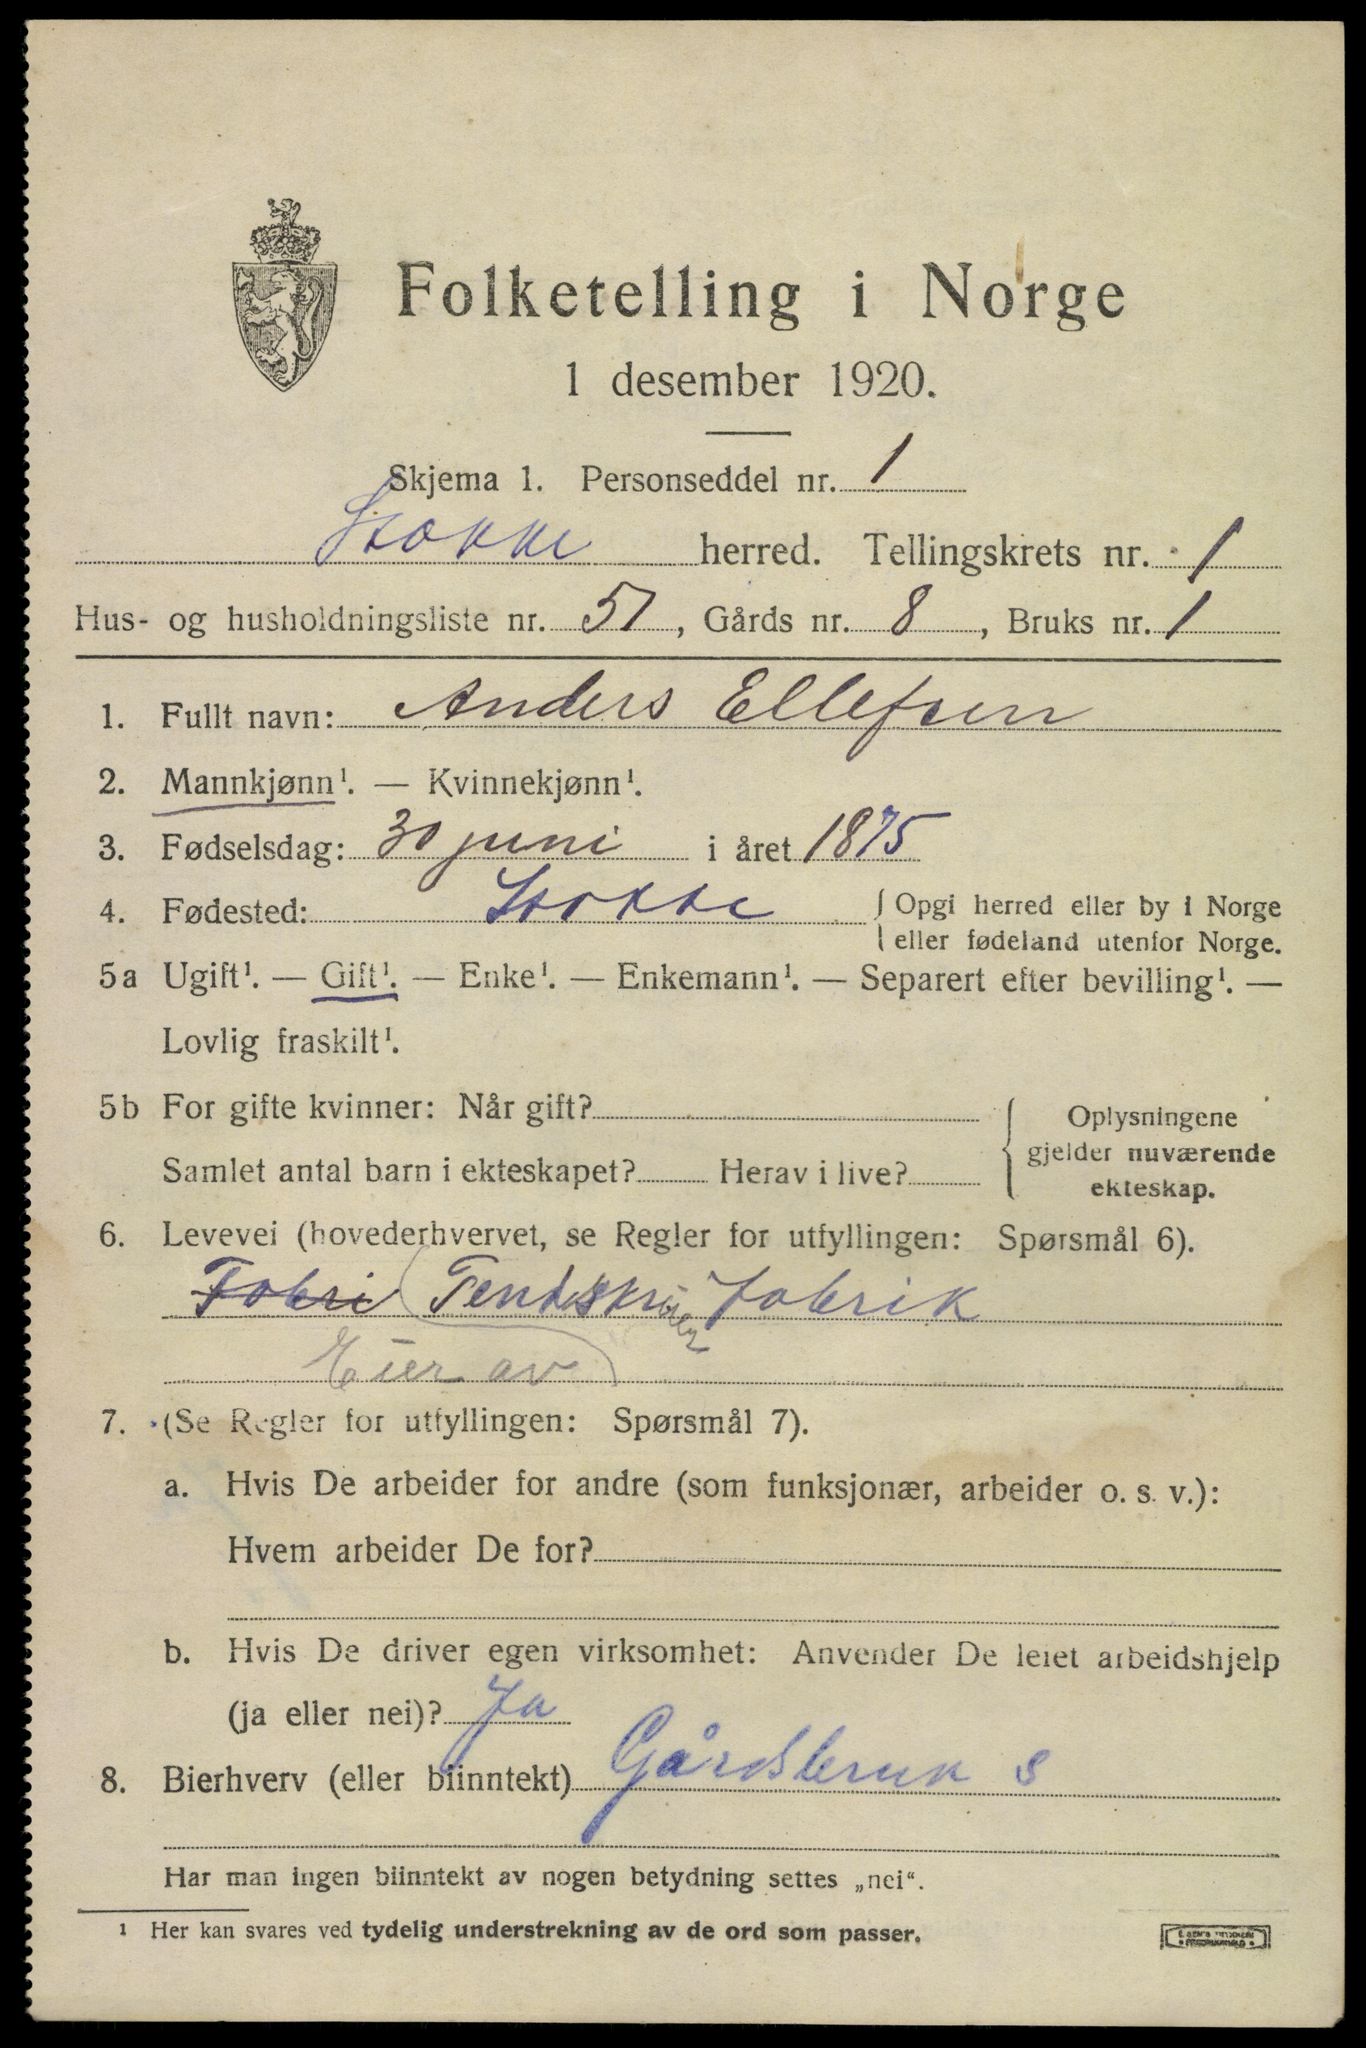 Folketelling i Norge
1 desember 1920.
Skjema 1. Personseddel nr. 1
Stokke herred. Tellingskrets nr. 1
Hus- og husholdningsliste nr. 51, Gårds nr. 8, Bruks nr. 1
1. Fullt navn: Anders Ellefsen
2. Mannkjønn¹. — Kvinnekjønn¹.
3. Fødselsdag: 30 juni i året 1875
4. Fødested: Stokke { Opgi herred eller by i Norge
eller fødeland utenfor Norge.
5a Ugift¹. — Gift¹. — Enke¹. — Enkemann¹. — Separert efter bevilling¹. —
Lovlig fraskilt¹.
5b For gifte kvinner: Når gift? { Oplysningene
gjelder nuværende
Samlet antal barn i ekteskapet? Herav i live? ekteskap.
6. Levevei (hovederhvervet, se Regler for utfyllingen: Spørsmål 6).
Fabri fabrik
Eier av
7. (Se Regler for utfyllingen: Spørsmål 7).
a. Hvis De arbeider for andre (som funksjonær, arbeider o. s. v.):
Hvem arbeider De for?
b. Hvis De driver egen virksomhet: Anvender De leiet arbeidshjelp
(ja eller nei)? Ja
8. Bierhverv (eller biinntekt) Gårdsbruk s
Har man ingen biinntekt av nogen betydning settes „nei“.
¹ Her kan svares ved tydelig understrekning av de ord som passer.